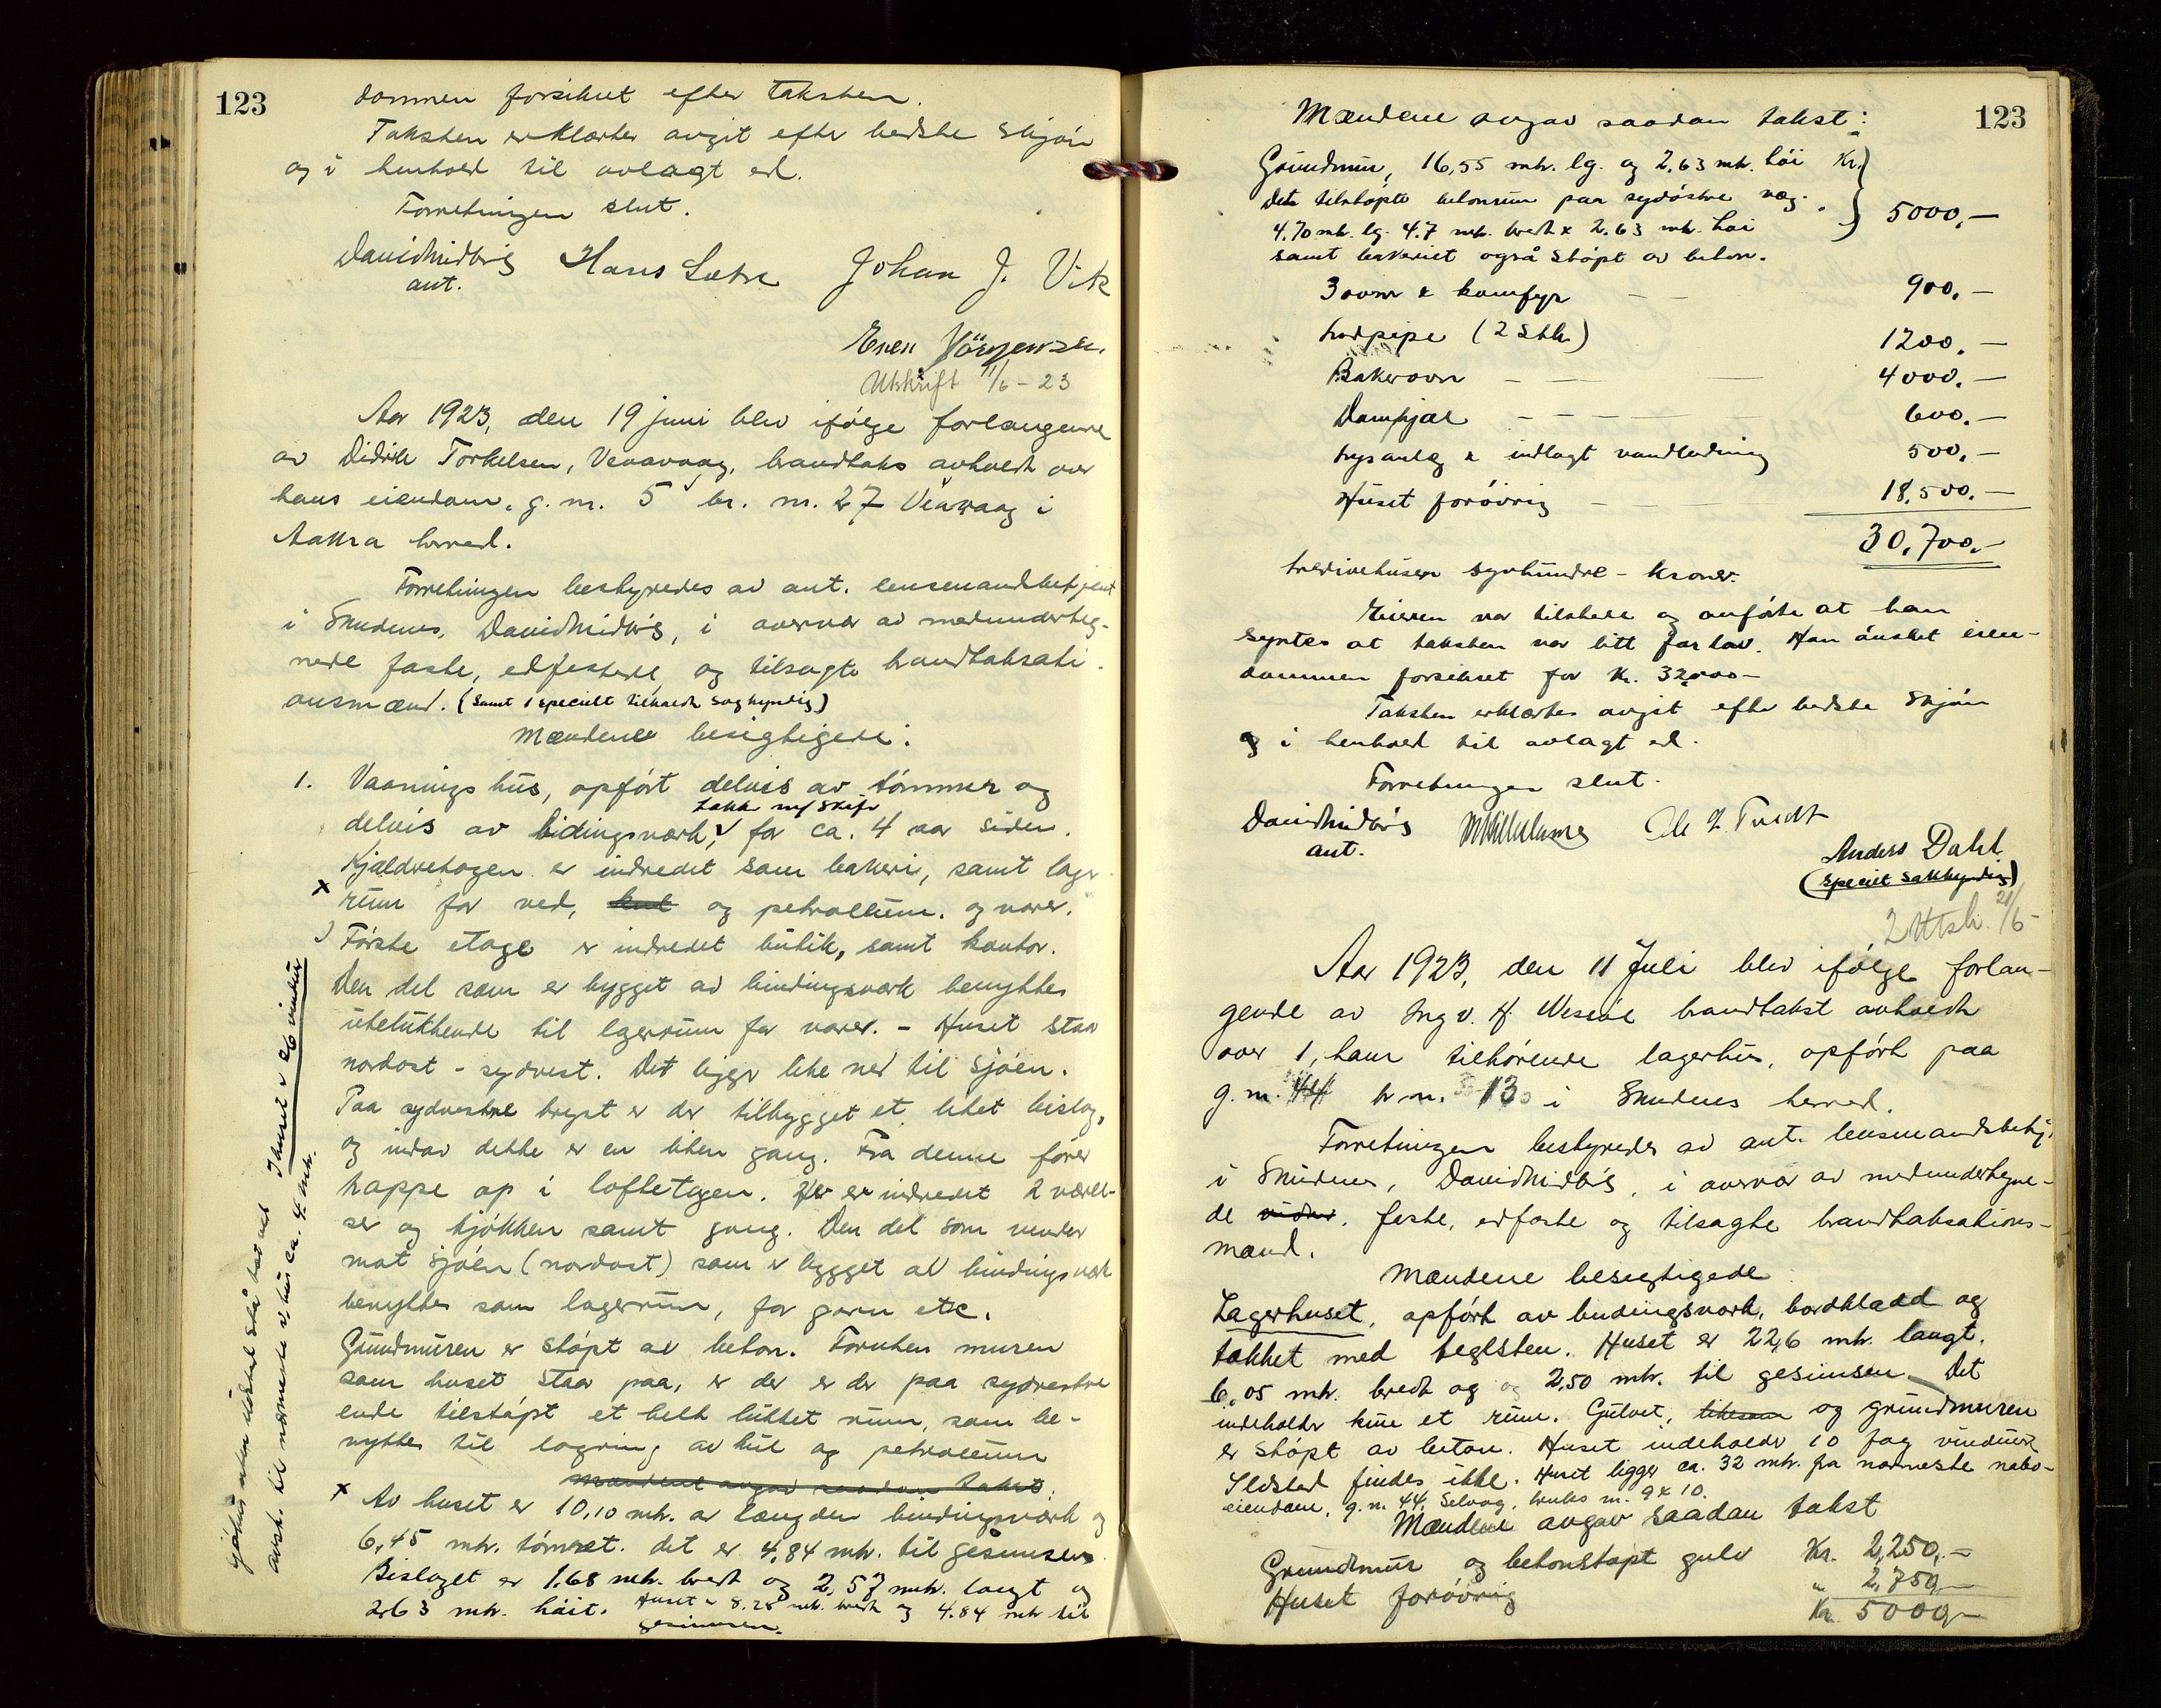 123
dommen forsikret efter taksten.
Taksten erklærtes avgit efter bedste skjøn
og i henhold til avlagt ed.
Forretningen slut.
David Midbrø Hans Sæbø Johan J. Vik
ant.
Enen Jörgensen.
Utskrift 11/6 - 23
Aar 1923, den 19 juni blev ifølge forlangende
av Didrik Torkelsen, Veavaag, brandtakst avholdt over
hans eiendom, g. nr. 5 br. nr. 27 Veavaag i
Aakra herred.
Forretningen bestyredes av ant. lensmandbetjent
i Skudenes, David Midbrø, i overvær av medunderteg-
nede faste, edfestede og tilsagte brandtaksati-
onsmænd. (Samt 1 specielt tilkaldt sagkyndig)
Mændene besigtigede:
1. Vaaningshus, opført delvis av tømmer og
takt m/ skifr
delvis av bidingsværk, for ca. 4 aar siden.
Kjælderetagen er indredet som bakeri, samt lager-
x rum for ved, kul og petroleum. og varer.
Første etage er indredet butik, samt kontor.
Den del som er bygget av bindingsværk benyttes
utelukkende til lagerrum for varer. - Huset staar
nordost - sydvest. Det ligger like ned til sjøen.
Paa sydvestre bryst er der tilbygget et litet bislag,
og indav dette er en liten gang. Fra denne fører
trappe op i loftetagen. Her er indredet 2 værel-
ser og kjøkken samt gang. Den del som vender
mot sjøen (nordost) som er bygget av bindingsværk
benyttes som lagerrum, for garn etc.
Grundmuren er støpt av beton. Foruten muren
som huset staar paa, er der er der paa sydvestre
ende tilstøpt et helt lukket rum, som be-
nyttes til lagring av kul og petroleum
Mændene avgav saadan takst:
x Av huset er 10,10 mtr. av længden bindingsværk og
6,45 mtr. tømret. det er 4,84 mtr. til gesimsen
Bislaget er 1.68 mtr. bredt og 2,57 mtr. langt og
2,63 mtr. høit. Huset er 8.28 mtr. bredt og 4.84 mtr til
gesimsen.
I huset er 26 vinduer
avst. til nærmeste v/hus ca. 4 mtr.
123
Mændene avgav saadan takst:
Grundmur, 16,55 mtr. lg. og 2,63 mtr. høi Kr.
Det tilstøpte betonrum paa sydøstre væg. 5000,-
4.70 mtr. lg. 4.7 mtr. bredt x 2.63 mtr. høi
samt bakeriet også støpt av beton.
3 ovner & komfyr - - 900.-
Murpipe (2 Stk.) 1200.-
Bakerovn - - 4000.-
Dampkjæl - - - - 600.-
Lysanlæg & indlagt vandledning 500.-
Huset forøvrig - - 18.500.-
30.700.-
Tredivetusen syvhundre - kroner.
Eieren var tilstede og anførte at han
syntes at taksten var litt for lav. Han ønsket eien-
dommen forsikret for Kr. 32000-
Taksten erklærtes avgit efter bedste skjøn
og i henhold til avlagt ed.
Forretningen slut.
David Midbrø Ole J. Tvedt
ant.
Anders Dahl
(Specielt sakkyndig)
2 Utsk. 21/6-
Aar 1923, den 11 Juli blev ifølge forlan-
gende av Ingv. H. Wessøe brandtakst avholdt
over 1, ham tilhørende lagerhus, opført paa
g. nr. 44 br. nr. 13 i Skudenes herred.
Forretningen bestyredes av ant. lensmandsbetj.
i Skudenes, David Midbrø, i overvær av medundertegne-
de vidner, faste, edfaste og tilsagte brandtaksations-
mænd.
Mændene besigtigede
Lagerhuset, opført av bindingsværk, bordklædd og
tækket med teglsten. Huset er 22,6 mtr. langt,
6,05 mtr. bredt og og 2,50 mtr. til gesimsen. Det
indeholder kun et rum. Gulvet, likesom og grundmuren
er støpt av beton. Huset indeholder 10 fag vinduer
Ildsted findes ikke. Huset ligger ca. 32 mtr. fra nærmeste nabo-
eiendom, g. nr. 44, Selvog, bruks nr. 9 x 10.
Mændene avgav saadan takst
Grundmur og betonstøpt gulv Kr. 2,250,-
Huset forøvrig " 2,750,-
Kr. 5000,-